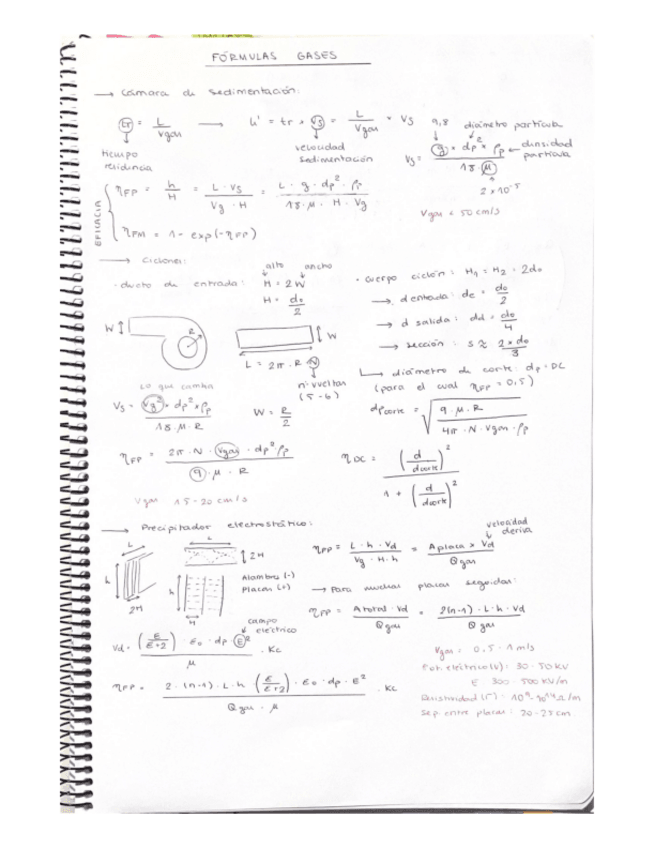 FÓRMULAS GASES
→ Cámara de sedimentación:
tr = L / Vgas → h' = tr × Vs = L / Vgas × Vs
tiempo residencia
velocidad sedimentación
9,8 diámetro partícula
Vs = g × dp² × ρp / 18 · μ ← densidad partícula
2 × 10⁻⁵
EFICACIA
ηFP = h / H = L · Vs / Vg · H = L · g · dp² · ρp / 18 · μ · H · Vg
Vgas < 50 cm/s
ηFM = 1 - exp(-ηFP)
→ Ciclones:
alto ancho
· ducto de entrada: H = 2W
H = do / 2
· cuerpo ciclón: H1 = H2 = 2do
→ d entrada: de = do / 2
→ d salida: dd = do / 4
→ sección: s ≈ 2 × do / 3
W R
W
L = 2π · R · N
nº vueltas (5-6)
↳ diámetro de corte: dp = DC
(para el cual ηFP = 0,5)
lo que cambia
Vs = Vg² × dp² × ρp / 18 · μ · R
W = R / 2
dp corte = √ 9 · μ · R / 4π · N · Vgas · ρp
ηFP = 2π · N · Vgas · dp² ρp / 9 · μ · R
ηDC = (d / dcorte)² / 1 + (d / dcorte)²
Vgas 15-20 cm/s
→ Precipitador electrostático:
velocidad deriva
L
h
2H
L
2H
h
H
Alambres (-)
Placas (+)
ηFP = L · h · Vd / Vg · H · h = A placa × Vd / Q gas
→ Para muchas placas seguidas:
ηFP = A total · Vd / Q gas = 2(n-1) · L · h · Vd / Q gas
campo eléctrico
Vd = (ε / ε+2) · ε₀ · dp · E² / μ · Kc
ηFP = 2 · (n-1) · L · h (ε / ε+2) · ε₀ · dp · E² / Q gas · μ · Kc
Vgas = 0,5 - 1 m/s
Pot. eléctrico (V): 30 - 50 KV
E 300 - 500 KV/m
Sep. entre placas: 20-25 cm